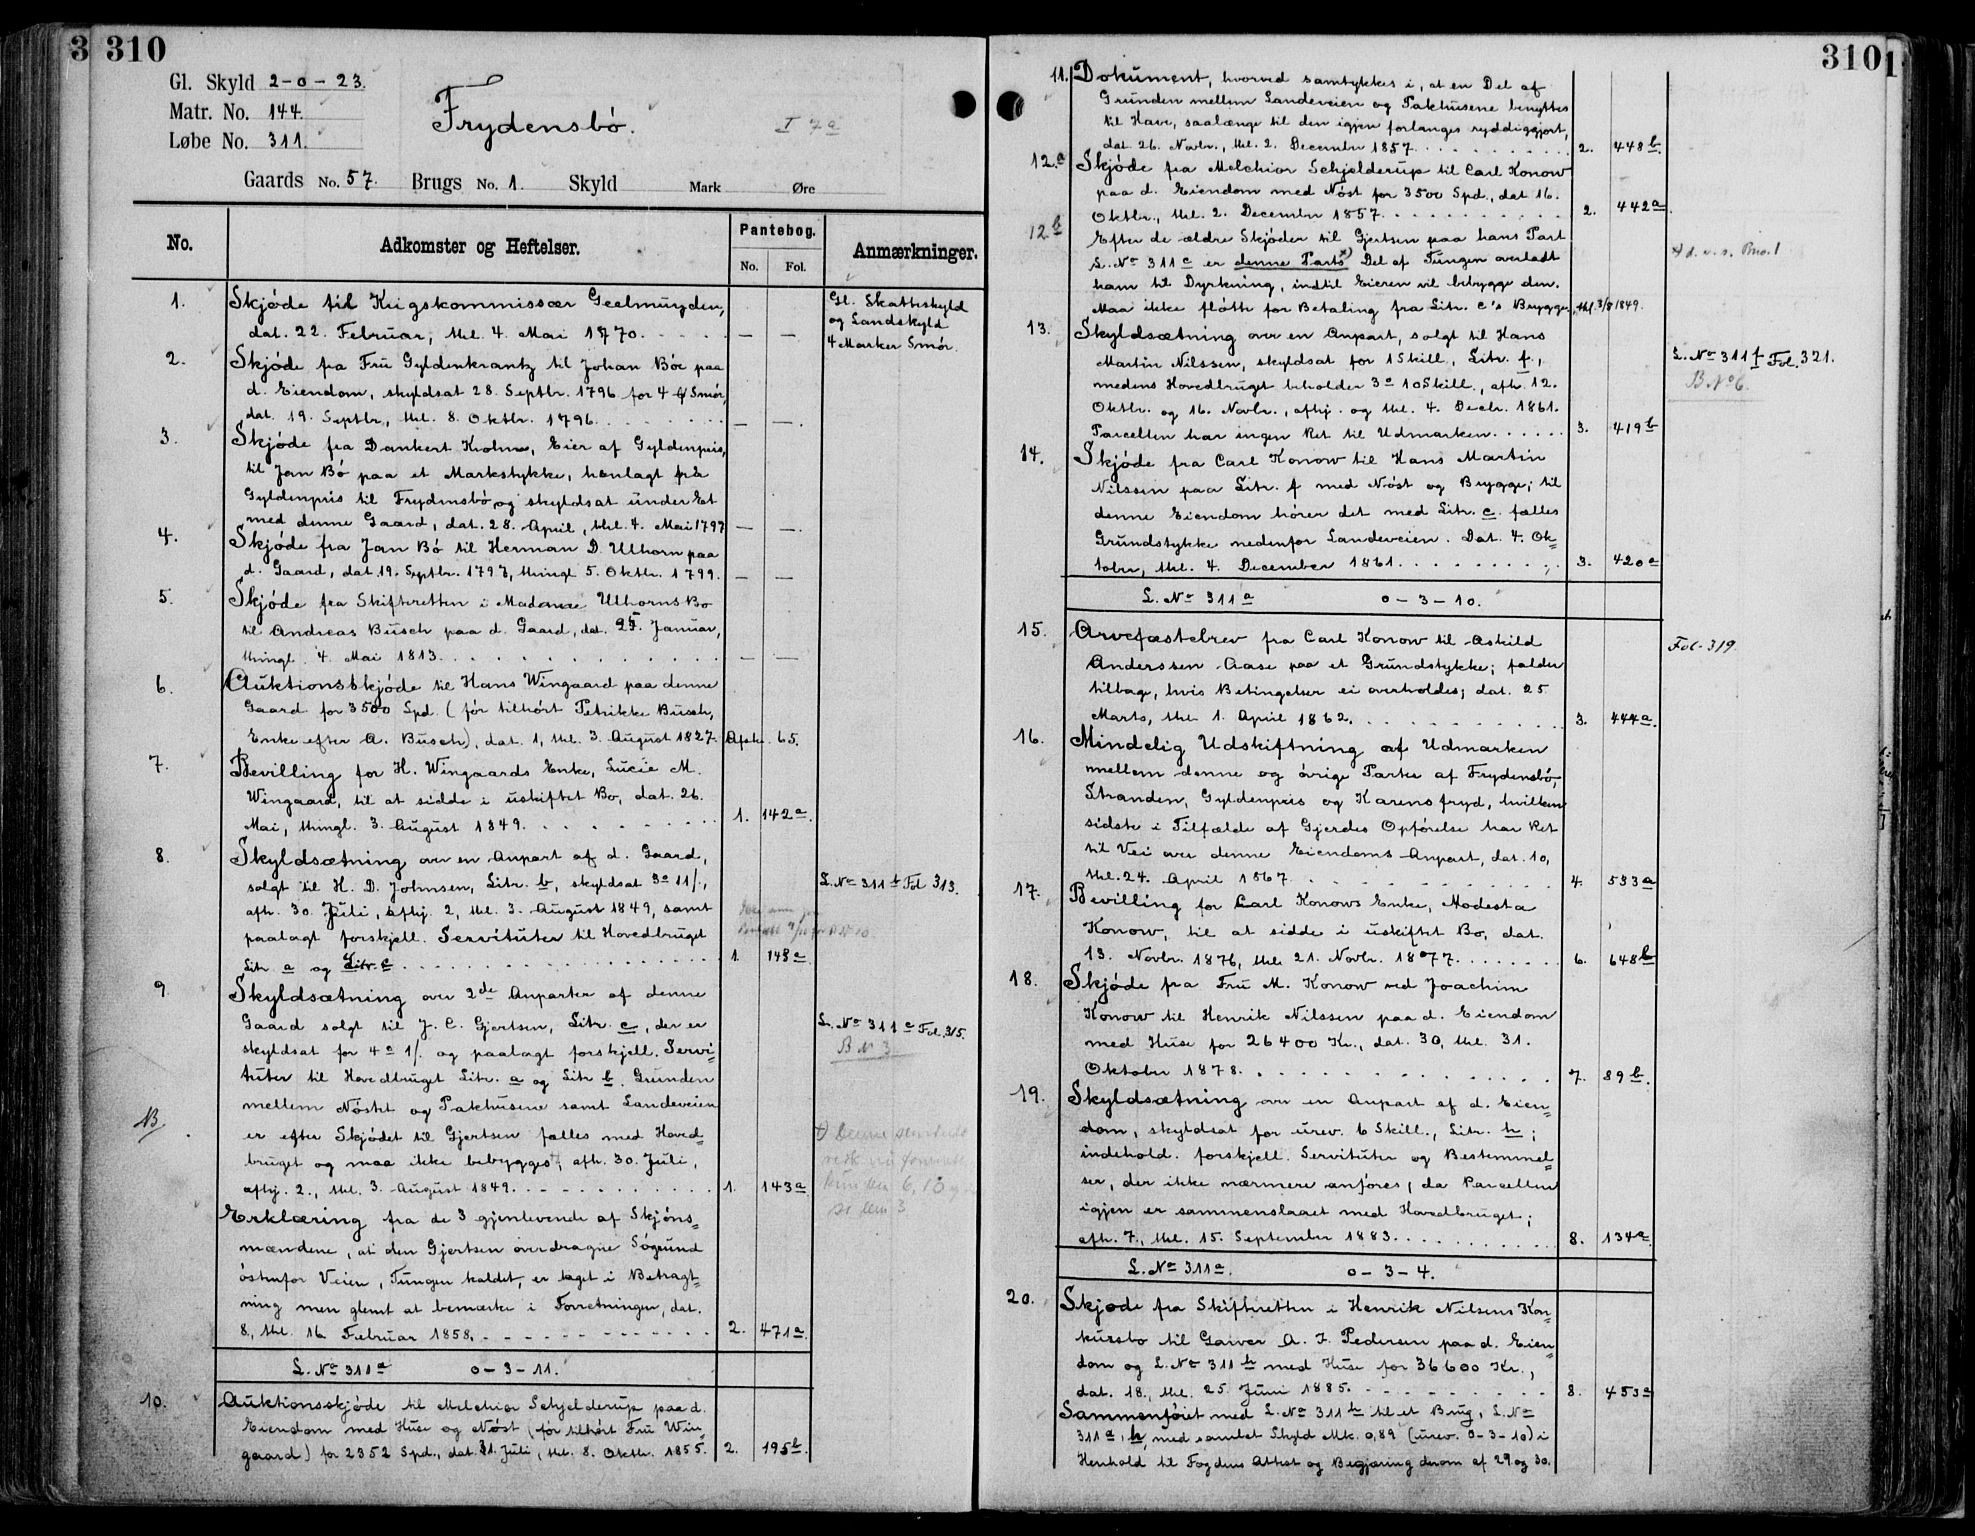 3 310
Gl. Skyld 2-0-23.
Matr. No. 144.
Løbe No. 311.
Frydensbö.
I 7a
Gaards No. 57. Brugs No. 1. Skyld Mark Øre
No. Adkomster og Heftelser. Pantebog. Anmærkninger.
No. Fol.
1. Skjöde til Krigskommissær Geelmuyden,
dat. 22. Februar, thl. 4. Mai 1770. — —
Gl. Skatteskyld
og Landskyld
4 Marker Smör.
2. Skjöde fra Fru Gyldenkrantz til Johan Böe paa
d. Eiendom, skyldsat 28. Septbr. 1796 for 4 Smör,
dat. 19. Septbr, thl. 8. Oktbr. 1796. — —.
3. Skjöde fra Dankert Krohn, Eier af Gyldenpris,
til Jan Bö paa et Markstykke, henlagt fra
Gyldenpris til Frydensbö og skyldsat under Et
med denne Gaard, dat. 28. April, thl. 4. Mai 1797 — —.
4. Skjöde fra Jan Bö til Herman D. Ulhorn paa
d. Gaard, dat. 19. Septbr. 1797, thingl 5. Oktbr. 1799. — —
5. Skjöde fra Skifteretten i Madame Ulhorns Bo
til Andreas Busch paa d. Gaard, dat. 25. Januar,
thingl. 4. Mai 1813. — —
6. Auktionsskjöde til Hans Wingaard paa denne
Gaard for 3500 Spd. (för tilhört Petrikke Busch,
Enke efter A. Busch), dat. 1, thl. 3. August 1827. Afskr. 65.
7. Bevilling for H. Wingaards Enke, Lucie M.
Wingaard, til at sidde i uskiftet Bo, dat. 26.
Mai, thingl. 3. August 1849. 1. 142a.
8. Skyldsætning over en Anpart af d. Gaard,
solgt til H. D. Johnsen, Litr. b, skyldsat 3o 11/.,
afh. 30. Juli, afhj. 2, thl. 3. August 1849, samt
paalagt forskjell. Servituter til Hovedbruget
Litr a og Litr. c. 1. 148a
L. No 311 b Fol 313.
9. Skyldsætning over 2de Anparter af denne
Gaard solgt til J. C. Gjertsen, Litr. c, der er
skyldsat for 4o 1/. og paalagt forskjell. Servi=
tuter til Hovedbruget Litr. a og Litr b. Grunden
mellem Nöstet og Pakhusene samt Landeveien
er efter Skjödet til Gjertsen fælles med Hoved=
bruget og maa ikke bebygges; afh. 30. Juli,
afhj. 2., thl. 3. August 1849. 1. 143a
L. No 311 c Fol. 315.
B No 3
NB.
Erklæring fra de 3 gjenlevende af Skjöns=
mændene, at den Gjertsen overdragne Sögrund
östenfor Veien, Tungen kaldet, er taget i Betragt=
ning men glemt at bemærke i Forretningen, dat.
8., thl. 16. Februar 1858. 2. 471a.
L. No 311a 0-3-11.
10. Auktionsskjöde til Melchior Schjelderup paa d.
Eiendom med Huse og Nöst (för tilhört Fru Win=
gaard) for 2352 Spd., dat. 31. Juli, thl. 8. Oktbr. 1855. 2. 195b.
310 1
11. Dokument, hvorved samtykkes i, at en Del af
Grunden mellem Landeveien og Pakhusene benyttes
til Have, saalænge til den igjen forlanges ryddiggjort,
dat 26. Novbr., thl. 2. December 1857. 2. 448b.
12.a Skjöde fra Melchior Schjelderup til Carl Konow
paa d. Eiendom med Nöst for 3500 Spd., dat 16.
Oktbr., thl. 2. December 1857. 2. 442a.
12b Efter de ældre Skjöder til Gjertsen paa hans Part
L. No 311 c er denne Parts Del af Tungen overladt
ham til Dyrkning, indtil Eieren vil bebygge den.
Maa ikke flötte for Betaling fra Litr. c's Brygge, thl. 3/8 1849.
+) d. v. s. Bno. 1
13. Skyldsætning over en Anpart, solgt til Hans
Martin Nilssen, skyldsat for 1 Skill., Litr. f.,
medens Hovedbruget beholder 3o 10 Skill., afh. 12.
Oktbr. og 16. Novbr., afhj. og thl. 4. Decbr. 1861.
Parcellen har ingen Ret til Udmarken. 3. 419b
L. No 311 f Fol. 321.
B No 6.
14. Skjöde fra Carl Konow til Hans Martin
Nilssen paa Litr. f med Nöst og Brygge; til
denne Eiendom hörer det med Litr. c. fælles
Grundstykke nedenfor Landeveien. Dat. 4. Ok=
tober, thl. 4. December 1861. 3. 420a
L. No 311a 0-3-10.
15. Arvefæstebrev fra Carl Konow til Askild
Anderssen Aase paa et Grundstykke; falder
tilbage, hvis Betingelser ei overholdes; dat. 25.
Marts, thl 1. April 1862. 3. 444a.
Fol. 319.
16. Mindelig Udskiftning af Udmarken
mellem denne og övrige Parter af Frydensbö,
Stranden, Gyldenpris og Karensfryd, hvilken
sidste i Tilfælde af Gjerdes Opförelse har Ret
til Vei over denne Eiendoms Anpart, dat. 10,
thl. 24. April 1867. 4. 533a
17. Bevilling for Carl Konows Enke, Modesta
Konow, til at sidde i uskiftet Bo, dat.
13. Novbr. 1876, thl. 21. Novbr. 1877. 6. 648b
18. Skjöde fra Fru M. Konow ved Joachim
Konow til Henrik Nilssen paa d. Eiendom
med Huse for 26400 Kr., dat. 30, thl. 31.
Oktober 1878. 7. 89b.
19. Skyldsætning over en Anpart af d. Eien=
dom, skyldsat for urev. 6 Skill., Litr. h;
indehold. forskjell. Servituter og Bestemmel=
ser, der ikke nærmere anföres, da Parcellen
igjen er sammenslaaet med Hovedbruget;
afh. 7., thl. 15. September 1883. 8. 134a.
L. No 311a. 0-3-4.
20. Skjöde fra Skifteretten i Henrik Nilsens Kon=
kursbo til Garver A. J. Pedersen paa d. Eien=
dom og L. No 311 h med Huse for 36600 Kr.,
dat. 18., thl. 25. Juni 1885. 8. 453a
Sammenföiet med L. No 311 h til et Brug, L. No
311 a, h, med samlet Skyld Mk. 0,89 (urev. 0-3-10) i
Henhold til Fogdens Attest og Begjæring derom af 29 og 30.